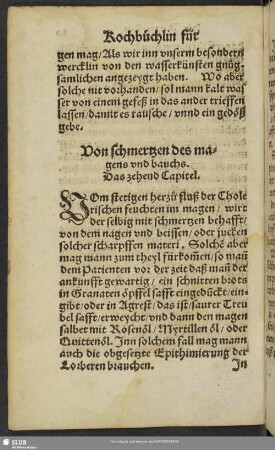 Kochbüchlin für
gen mag/Als wir inn vnserm besondern
wercklin von den wasserkünsten gnůg-
samlichen angezeygt haben. Wo aber
solche nit vorhanden/sol mann kalt was
ser von einem gefeß in das ander trieffen
lassen/damit es rausche/vnnd ein gedöß
gebe.
Von schmertzen des ma-
gens vnd bauchs.
Das zehend Capitel.
VOm stetigen herzů fluß der Chole
rischen feuchten im magen/wirt
der selbig mit schmertzen behafft/
von dem nagen vnd beissen/oder jucken
solcher scharpffen materi. Solchē aber
mag mann zum theyl fürkom̄en/so man̄
dem Patienten vor der zeit daß man̄ der
ankunfft gewartig/ein schnitten brots
in Granaten öpffel safft eingedückt/ein-
gibt/oder in Agrest/das ist/saurer Treu
bel safft/erweycht/vnd dann den magen
salbet mit Rosenöl/Myrtillen öl/oder
Quittenöl. Inn solchem fall mag mann
auch die obgesetzte Epithimierung der
Lorberen brauchen.
In
SLUB